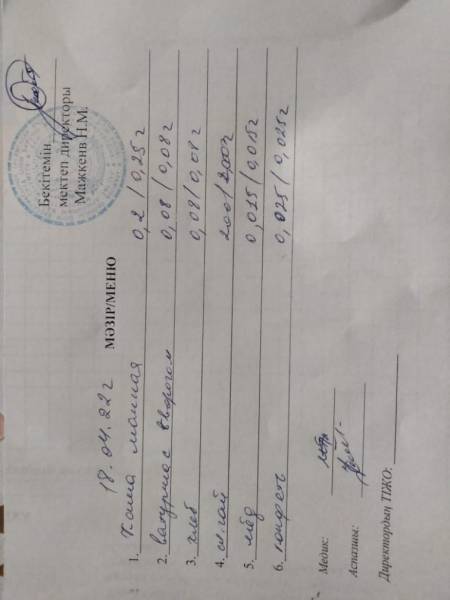 Бекітемін
мектеп директоры
Мажкенв Н.М.
18.04.22г МӘЗІР/МЕНЮ
1. Каша манная 0,2 / 0,25г
2. ватрушка с творогом 0,08 / 0,08г
3. хлеб 0,08 / 0,08г
4. сл.чай 200 / 200г
5. мёд 0,015 / 0,015г
6. конфеты 0,025 / 0,025г
Медик:
Аспазшы:
Директордың ТІЖО: